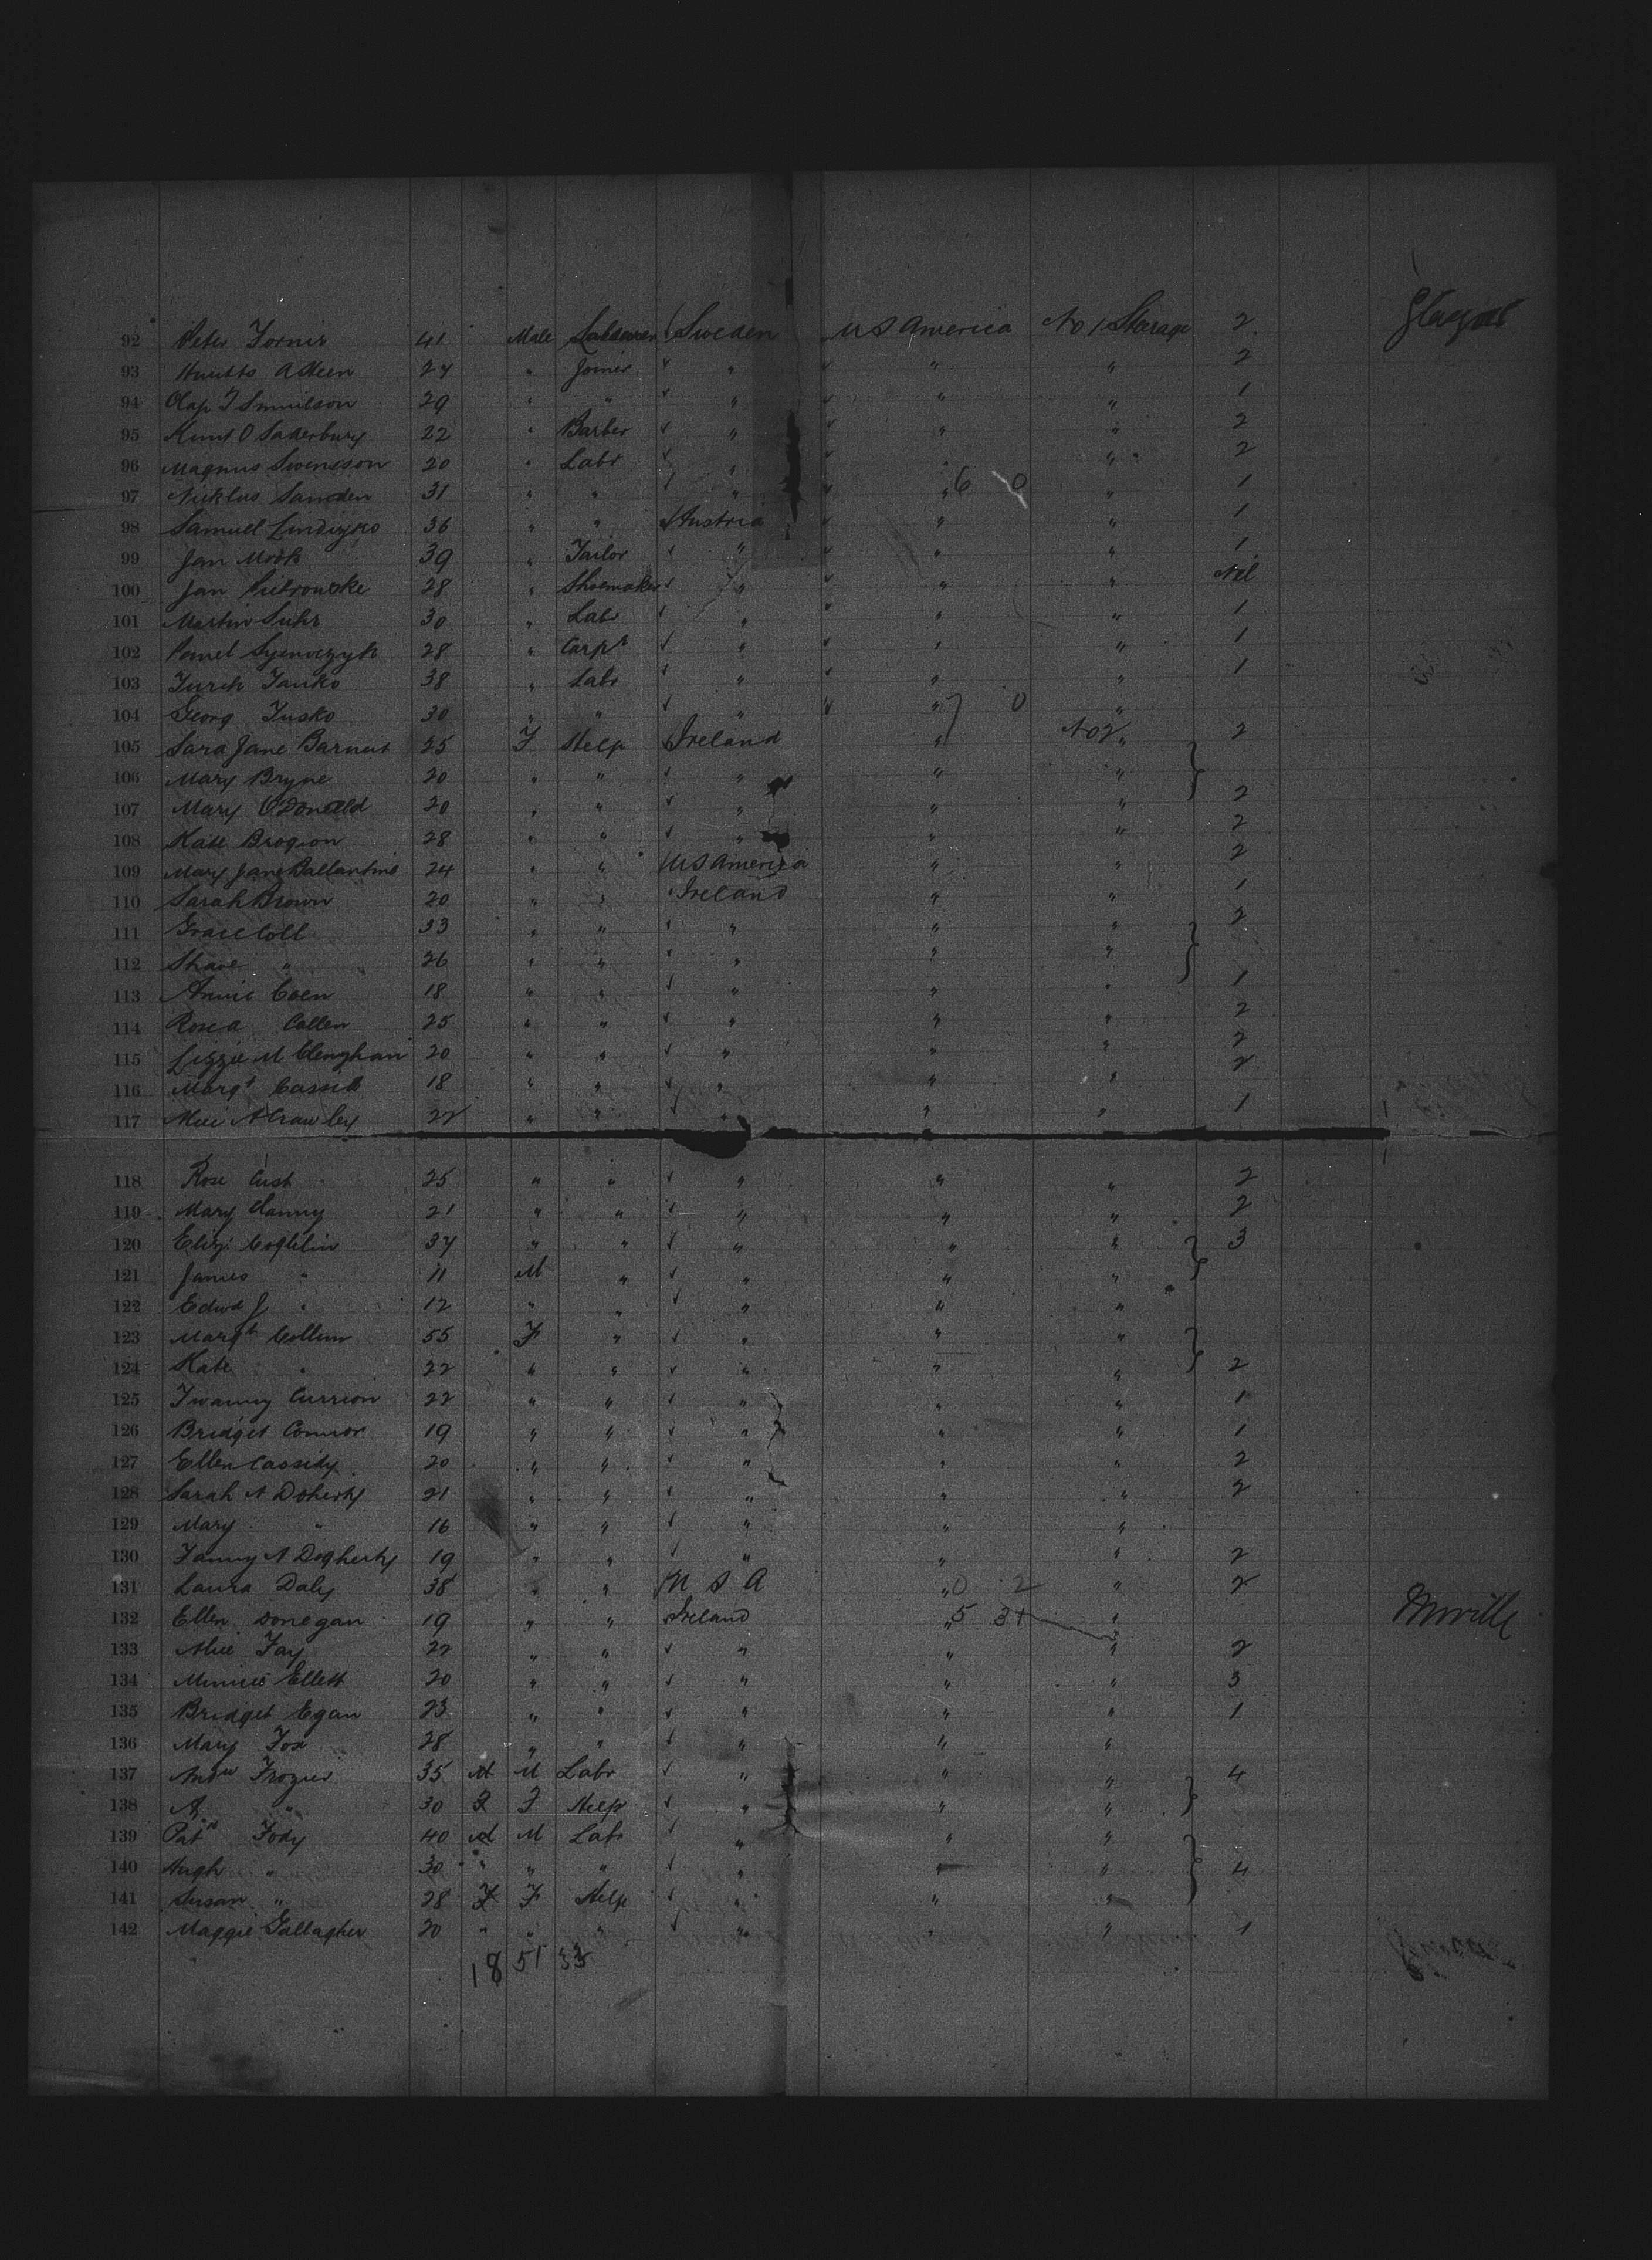 92 Peter 41 Male Sweden U S America No 1 Steerage 2 Glasgow
93 A Steen 27 " Joiner " " " 2
94 29 " " " " " 1
95 22 " Barber " " " 2
96 Magnus Swenson 20 " Labr " " " 2
97 31 " " " " 6 0 " 1
98 Samuel 36 " " Austria " " 1
99 Jan 39 " Tailor " " " 1
100 Jan 28 " Shoemaker " " " Nil
101 Martin Suhr 30 " Labr " " " 1
102 28 " Carpr " " " 1
103 Janko 38 " Labr " " " 1
104 Georg Jusko 30 " " " " 7 0 "
105 Sara Jane 25 F Help Ireland " No 2 " 2
106 Mary Bryne 20 " " " " "
107 Mary O'Donelld 20 " " " " " 2
108 Kate Brogion 28 " " " " " 2
109 Mary Jane Ballantine 24 " " U S America " " 2
110 Sarah Brown 20 " " Ireland " " 1
111 Grace Coll 33 " " " " " 2
112 " 26 " " " " "
113 Annie Coen 18 " " " " " 1
114 Rose A Callen 25 " " " " " 2
115 Lizzie M Clenghan 20 " " " " " 2
116 Margt 18 " " " " " 2
117 A Crawley 22 " " " " " 1
118 Rose Cush 25 " " " " " 2
119 Mary 21 " " " " " 2
120 Eliz. 37 " " " " " 3
121 James " 11 M " " " "
122 Edwd J " 12 " " " " "
123 Margt 55 F " " " "
124 Kate " 22 " " " " " 2
125 Currion 22 " " " " " 1
126 Bridget Connor 19 " " " " " 1
127 Ellen Cassidy 20 " " " " " 2
128 Sarah A Doherty 21 " " " " " 2
129 Mary " 16 " " " " "
130 Fanny A Dogherty 19 " " " " " 2
131 Laura Daly 38 " " U S A " 0 2 " 2
132 Ellen Donegan 19 " " Ireland " 5 31 " Moville
133 Alice Fay 22 " " " " " 2
134 Minnie Ellett 20 " " " " " 3
135 Bridget Egan 23 " " " " " 1
136 Mary Fox 28 " " " " "
137 Andw Frozier 35 M M Labr " " " 4
138 A " 30 F F Help " " "
139 Patk Fody 40 M M Labr " " "
140 Hugh " 30 " " " " " " 4
141 Susan " 28 F F Help " " "
142 Maggie Gallagher 20 " " " " " " 1
18 51 33